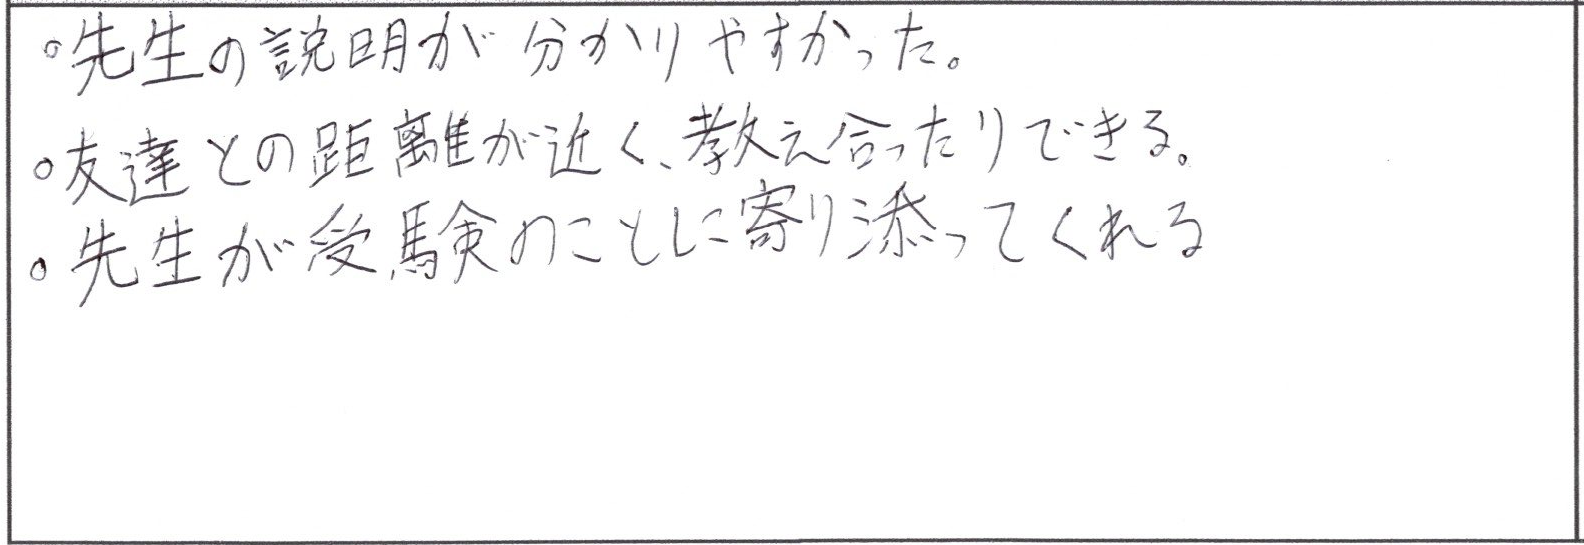 。先生の説明が分かりやすかった。
。友達との距離が近く、教え合ったりできる。
。先生が受験のことしに寄り添ってくれる